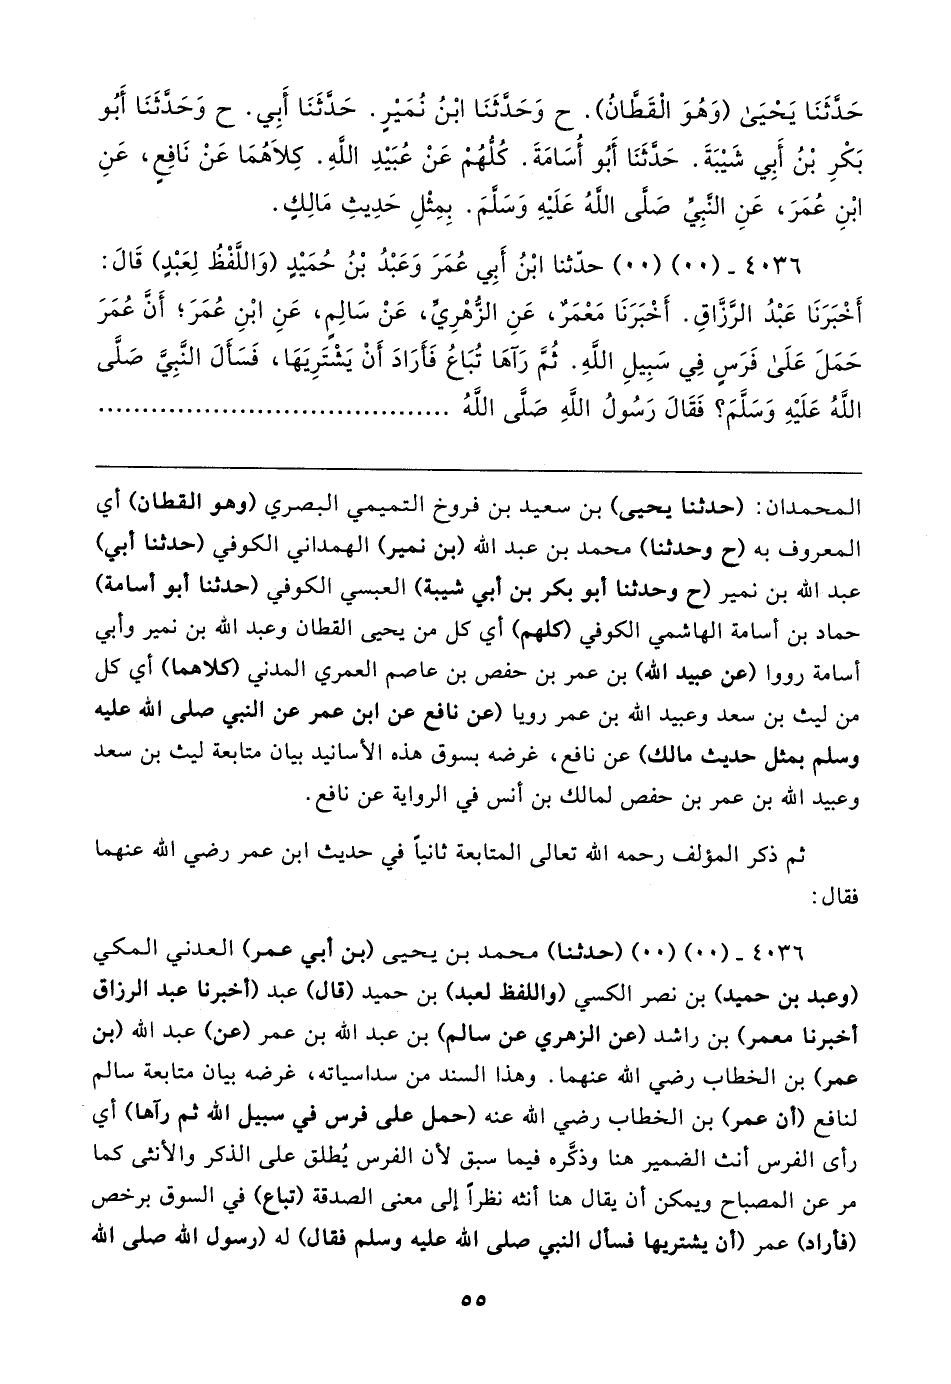 حَدَّثَنَا يَحْيَىٰ (وَهُوَ الْقَطَّانُ). ح وَحَدَّثَنَا ابْنُ نُمَيْرٍ. حَدَّثَنَا أَبِي. ح وَحَدَّثَنَا أَبُو
بَكْرِ بْنُ أَبِي شَيْبَةَ. حَدَّثَنَا أَبُو أُسَامَةَ. كُلُّهُمْ عَنْ عُبَيْدِ اللَّهِ. كِلاَهُمَا عَنْ نَافِعٍ، عَنِ
ابْنِ عُمَرَ، عَنِ النَّبِيِّ صَلَّى اللَّهُ عَلَيْهِ وَسَلَّمَ. بِمِثْلِ حَدِيثِ مَالِكٍ.
٤٠٣٦ ـ (٠٠) (٠٠) حدّثنا ابْنُ أَبِي عُمَرَ وَعَبْدُ بْنُ حُمَيْدٍ (وَاللَّفْظُ لِعَبْدٍ) قَالَ:
أَخْبَرَنَا عَبْدُ الرَّزَّاقِ. أَخْبَرَنَا مَعْمَرٌ، عَنِ الزُّهْرِيِّ، عَنْ سَالِمٍ، عَنِ ابْنِ عُمَرَ؛ أَنَّ عُمَرَ
حَمَلَ عَلَىٰ فَرَسٍ فِي سَبِيلِ اللَّهِ. ثُمَّ رَآهَا تُبَاعُ فَأَرَادَ أَنْ يَشْتَرِيَهَا، فَسَأَلَ النَّبِيَّ صَلَّى
اللَّهُ عَلَيْهِ وَسَلَّمَ؟ فَقَالَ رَسُولُ اللَّهِ صَلَّى اللَّهُ .................................................
المحمدان: (حدثنا يحيى) بن سعيد بن فروخ التميمي البصري (وهو القطان) أي
المعروف به (ح وحدثنا) محمد بن عبد الله (بن نمير) الهمداني الكوفي (حدثنا أبي)
عبد الله بن نمير (ح وحدثنا أبو بكر بن أبي شيبة) العبسي الكوفي (حدثنا أبو أسامة)
حماد بن أسامة الهاشمي الكوفي (كلهم) أي كل من يحيى القطان وعبد الله بن نمير وأبي
أسامة رووا (عن عبيد الله) بن عمر بن حفص بن عاصم العمري المدني (كلاهما) أي كل
من ليث بن سعد وعبيد الله بن عمر رويا (عن نافع عن ابن عمر عن النبي صلى الله عليه
وسلم بمثل حديث مالك) عن نافع، غرضه بسوق هذه الأسانيد بيان متابعة ليث بن سعد
وعبيد الله بن عمر بن حفص لمالك بن أنس في الرواية عن نافع.
ثم ذكر المؤلف رحمه الله تعالى المتابعة ثانياً في حديث ابن عمر رضي الله عنهما
فقال:
٤٠٣٦ ـ (٠٠) (٠٠) (حدثنا) محمد بن يحيى (بن أبي عمر) العدني المكي
(وعبد بن حميد) بن نصر الكسي (واللفظ لعبد) بن حميد (قال) عبد (أخبرنا عبد الرزاق
أخبرنا معمر) بن راشد (عن الزهري عن سالم) بن عبد الله بن عمر (عن) عبد الله (بن
عمر) بن الخطاب رضي الله عنهما. وهذا السند من سداسياته، غرضه بيان متابعة سالم
لنافع (أن عمر) بن الخطاب رضي الله عنه (حمل على فرس في سبيل الله ثم رآها) أي
رأى الفرس أنث الضمير هنا وذكَّره فيما سبق لأن الفرس يُطلق على الذكر والأنثى كما
مر عن المصباح ويمكن أن يقال هنا أنثه نظراً إلى معنى الصدقة (تباع) في السوق برخص
(فأراد) عمر (أن يشتريها فسأل النبي صلى الله عليه وسلم فقال) له (رسول الله صلى الله
٥٥